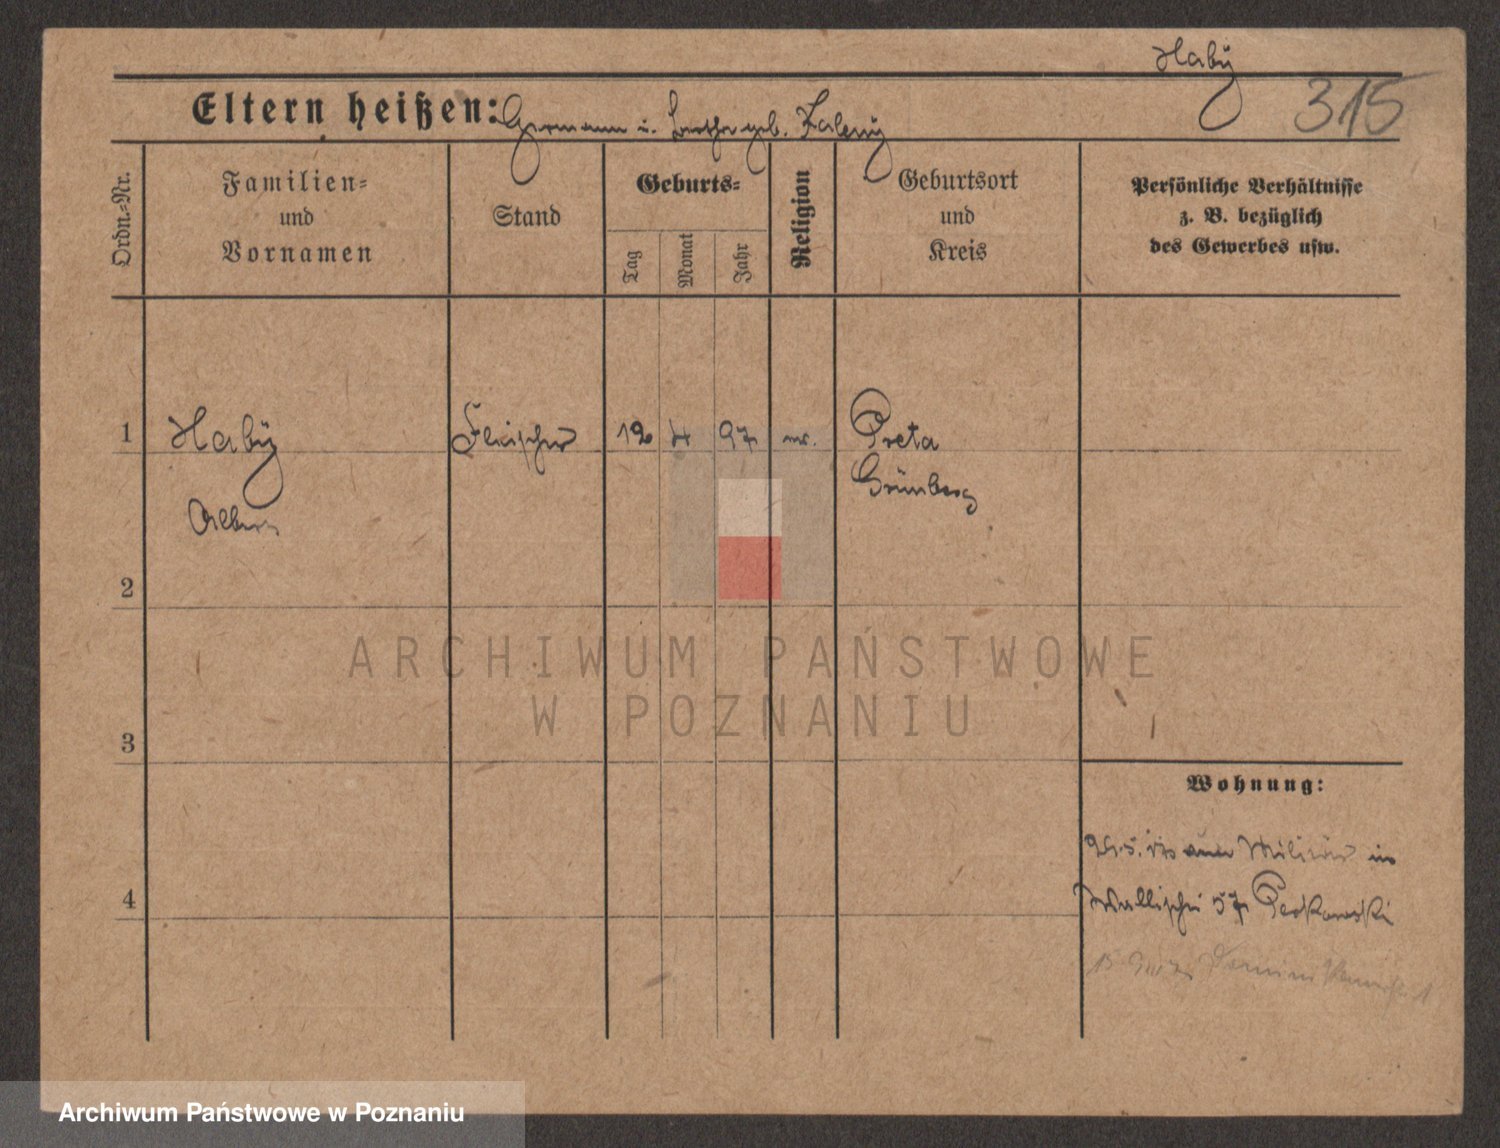 Haby
315
Eltern heißen: Hermann u. Bertha geb.
Ordn.=Nr.
Familien=
und
Vornamen
Stand
Geburts=
Tag
Monat
Jahr
Religion
Geburtsort
und
Kreis
Persönliche Verhältnisse
z. B. bezüglich
des Gewerbes usw.
1
Haby
Fleischer
12
4
97
ev.
Preta
Grünberg
2
ARCHIWUM PAŃSTWOWE
W POZNANIU
3
Wohnung:
Militär in
4
Wallischei 57
Archiwum Państwowe w Poznaniu